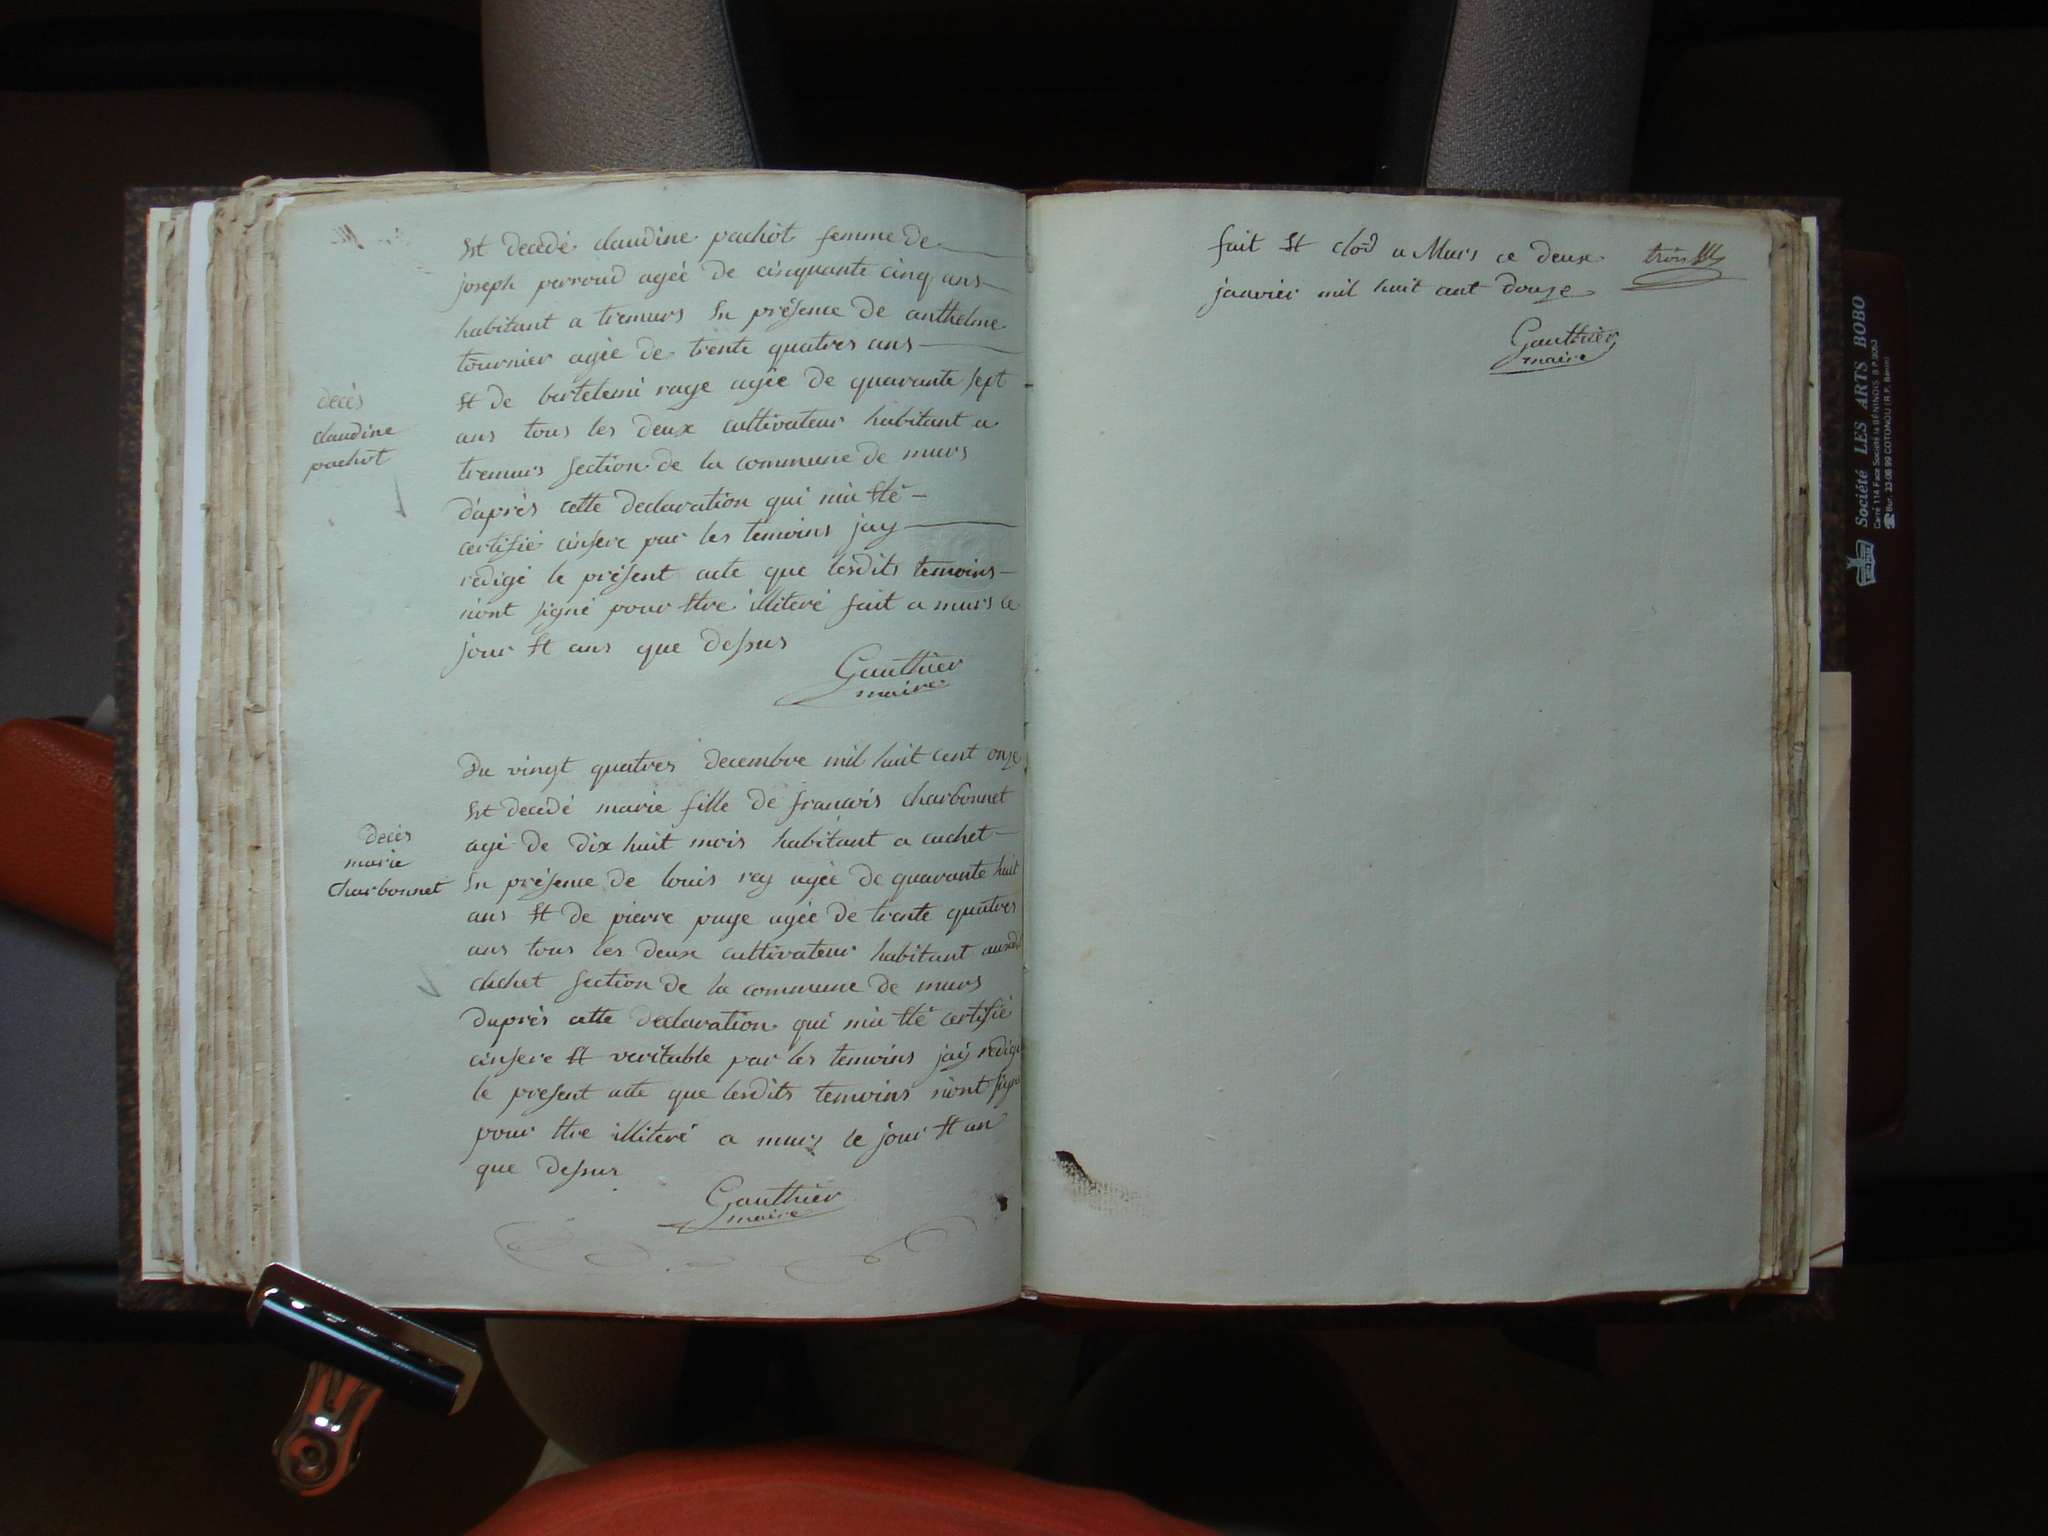 decès
claudine
pachot
Et decédé claudine pachot femme de
joseph perroud agée de cinquante cinq ans
habitant a tremurs En présence de anthelme
tournier agée de trente quatres ans
Et de bertelemi raye agée de quarante sept
ans tous les deux cultivateur habitant a
tremurs section de la commune de murs
d'aprés cette declaration qui m'a Eté
certifié cinsere par les temoins jay
rédigé le présent acte que lesdits temoins
n'ont signé pour Etre illiteré fait a murs ce
jour Et ans que dessus
Gauthier
maire
decès
marie
charbonnet
Du vingt quatres decembre mil huit cent onze
Et decédé marie fille de francois charbonnet
agé de dix huit mois habitant a cuchet
En présence de louis rey agée de quarante huit
ans Et de pierre page agée de trente quatres
ans tous les deux cultivateur habitant
cuchet section de la commune de murs
daprés cette declaration qui m'a Eté certifié
cinsere Et veritable par les temoins jay redigé
le present acte que lesdits temoins n'ont signé
pour Etre illiteré a murs le jour Et an
que dessus
Gauthier
maire
fait Et clos a Murs ce deux
janvier mil huit cent douze
Gauthier
maire
Société LES ARTS BOBO